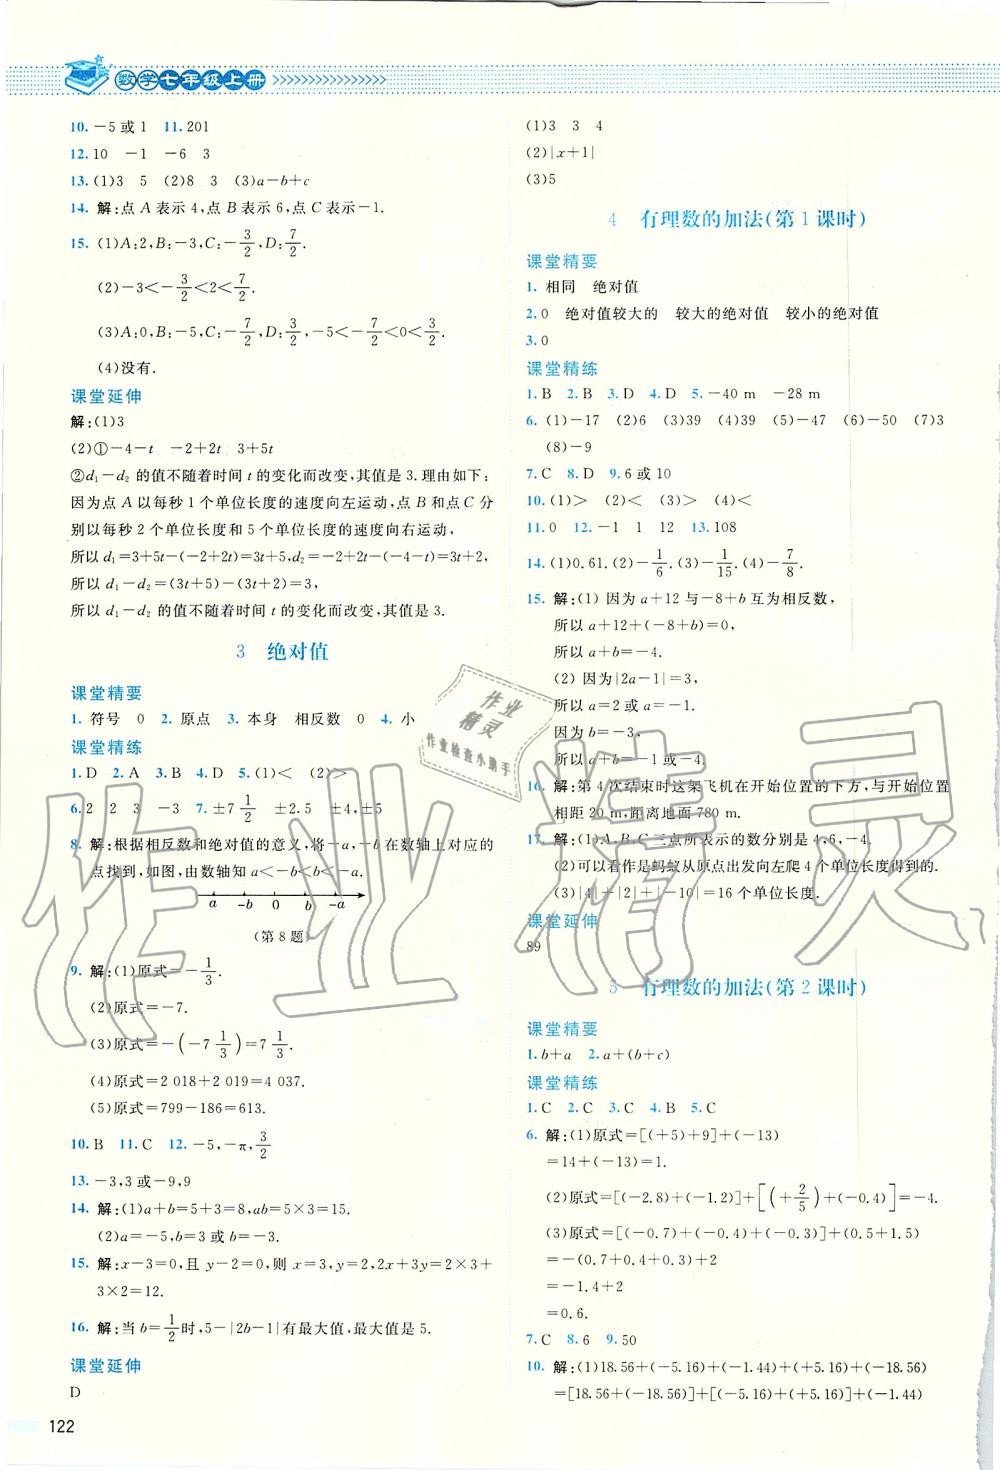 数学七年级上册
10. －5或1 11. 201
12. 10 －1 －6 3
13. (1)3 5 (2)8 3 (3)a－b＋c
14. 解:点A表示4,点B表示6,点C表示－1.
15. (1)A:2,B:－3,C:－3/2,D:7/2.
(2)－3＜－3/2＜2＜7/2.
(3)A:0,B:－5,C:－7/2,D:3/2,－5＜－7/2＜0＜3/2.
(4)没有.
课堂延伸
解:(1)3
(2)①－4－t －2＋2t 3＋5t
②d₁－d₂的值不随着时间t的变化而改变,其值是3.理由如下:
因为点A以每秒1个单位长度的速度向左运动,点B和点C分
别以每秒2个单位长度和5个单位长度的速度向右运动,
所以d₁＝3＋5t－(－2＋2t)＝3t＋5,d₂＝－2＋2t－(－4－t)＝3t＋2,
所以d₁－d₂＝(3t＋5)－(3t＋2)＝3,
所以d₁－d₂的值不随着时间t的变化而改变,其值是3.
3 绝对值
课堂精要
1. 符号 0 2. 原点 3. 本身 相反数 0 4. 小
课堂精练
1. D 2. A 3. B 4. D 5. (1)＜ (2)＞
6. 2 2 3 －3 7. ±7 1/2 ±2.5 ±4,±5
8. 解:根据相反数和绝对值的意义,将－a,－b在数轴上对应的
点找到,如图,由数轴知a＜－b＜b＜－a.
a －b 0 b －a
(第8题)
9. 解:(1)原式＝－1/3.
(2)原式＝－7.
(3)原式＝－(－7 1/3)＝7 1/3.
(4)原式＝2 018＋2 019＝4 037.
(5)原式＝799－186＝613.
10. B 11. C 12. －5,－π,3/2
13. －3,3或－9,9
14. 解:(1)a＋b＝5＋3＝8,ab＝5×3＝15.
(2)a＝－5,b＝3或b＝－3.
15. 解:x－3＝0,且y－2＝0,则x＝3,y＝2,2x＋3y＝2×3＋
3×2＝12.
16. 解:当b＝1/2时,5－|2b－1|有最大值,最大值是5.
课堂延伸
D
122
(1)3 3 4
(2)|x＋1|
(3)5
4 有理数的加法(第1课时)
课堂精要
1. 相同 绝对值
2. 0 绝对值较大的 较大的绝对值 较小的绝对值
3. 0
课堂精练
1. B 2. B 3. D 4. D 5. －40 m －28 m
6. (1)－17 (2)6 (3)39 (4)39 (5)－47 (6)－50 (7)3
(8)－9
7. C 8. D 9. 6或10
10. (1)＞ (2)＜ (3)＞ (4)＜
11. 0 12. －1 1 12 13. 108
14. (1)0.61. (2)－1/6. (3)－1/15. (4)－7/8.
15. 解:(1) 因为a＋12与－8＋b互为相反数,
所以a＋12＋(－8＋b)＝0,
所以a＋b＝－4.
(2) 因为|2a－1|＝3,
所以a＝2或a＝－1.
因为b＝－3,
所以a＋b＝－1或－4.
16. 解:第4次结束时这架飞机在开始位置的下方,与开始位置
相距20 m,距离地面780 m.
17. 解:(1)A,B,C三点所表示的数分别是4,6,－4.
(2)可以看作是蚂蚁从原点出发向左爬4个单位长度得到的.
(3)|4|＋|2|＋|－10|＝16个单位长度.
课堂延伸
89
5 有理数的加法(第2课时)
课堂精要
1. b＋a 2. a＋(b＋c)
课堂精练
1. C 2. C 3. C 4. B 5. C
6. 解:(1)原式＝[(＋5)＋9]＋(－13)
＝14＋(－13)＝1.
(2)原式＝[(－2.8)＋(－1.2)]＋[(＋2/5)＋(－0.4)]＝－4.
(3)原式＝[(－0.7)＋(－0.4)＋(－0.3)]＋(0.5＋1.5)
＝－(0.7＋0.4＋0.3)＋2
＝－1.4＋2
＝0.6.
7. C 8. 6 9. 50
10. 解:(1)18.56＋(－5.16)＋(－1.44)＋(＋5.16)＋(－18.56)
＝[18.56＋(－18.56)]＋[(－5.16)＋(＋5.16)]＋(－1.44)
作业
精灵
作业检查小助手
作业精灵